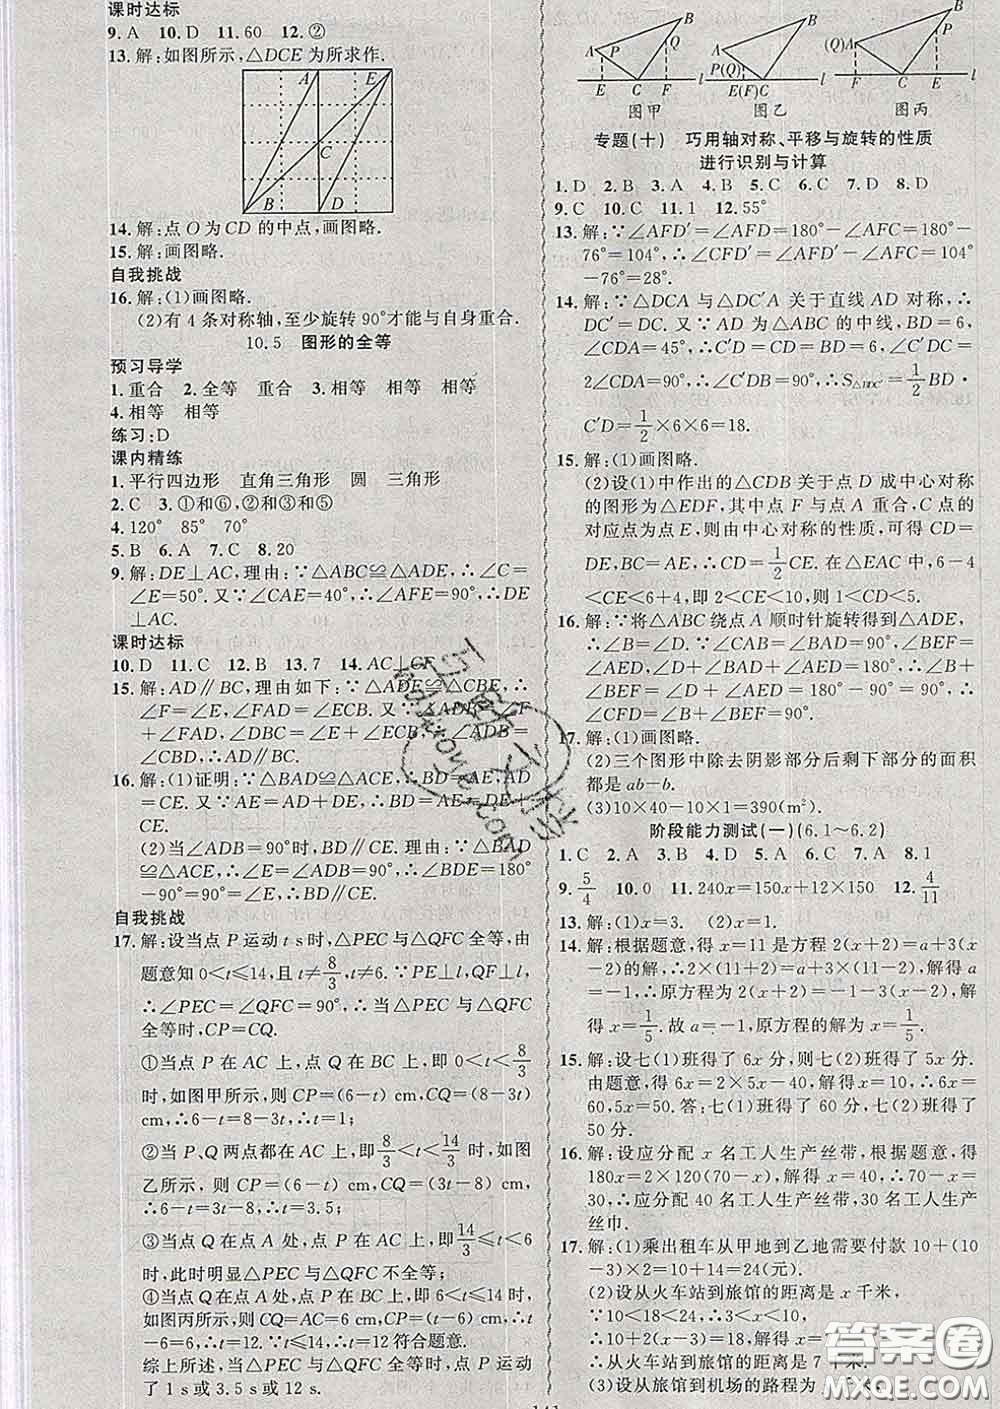 课时达标
9. A　10. D　11. 60　12. ②
13. 解:如图所示,△DCE 为所求作.
A　E
C
B　D
14. 解:点 O 为 CD 的中点,画图略.
15. 解:画图略.
自我挑战
16. 解:(1)画图略.
(2)有 4 条对称轴,至少旋转 90°才能与自身重合.
10.5　图形的全等
预习导学
1. 重合　2. 全等　重合　3. 相等　相等　相等
4. 相等　相等
练习:D
课内精练
1. 平行四边形　直角三角形　圆　三角形
2. C　3. ①和⑥,②和③和⑤
4. 120°　85°　70°
5. B　6. A　7. C　8. 20
9. 解:DE⊥AC,理由:∵△ABC≌△ADE,∴∠C=
∠E=50°. 又∵∠CAE=40°,∴∠AFE=90°,∴DE
⊥AC.
课时达标
10. D　11. C　12. B　13. 7　14. AC⊥CF
15. 解:AD∥BC,理由如下:∵△ADE≌△CBE,∴
∠F=∠E,∠FAD=∠ECB. 又∵∠ADB=∠F
+∠FAD,∠DBC=∠E+∠ECB,∴∠ADB=
∠CBD,∴AD∥BC.
16. 解:(1)证明:∵△BAD≌△ACE,∴BD=AE,AD
=CE. 又∵AE=AD+DE,∴BD=AE=DE+
CE.
(2)当∠ADB=90°时,BD∥CE. 理由:∵△BAD
≌△ACE,∴∠ADB=∠E=90°,∴∠BDE=180°
-90°=90°=∠E,∴BD∥CE.
自我挑战
17. 解:设当点 P 运动 t s时,△PEC与△QFC全等,由
题意知 0<t≤14,且 t≠8/3,t≠6. ∵PE⊥l,QF⊥l,
∴∠PEC=∠QFC=90°,∴当△PEC与△QFC
全等时,CP=CQ.
①当点 P 在 AC 上,点 Q 在 BC 上,即 0<t<8/3
时,如图甲所示,则 CP=(6-t) cm,CQ=(8-3t)
cm,∴6-t=8-3t,∴t=1;
②当 P、Q 两点都在 AC 上,即8/3<t<14/3时,如图
乙所示,则 CP=(6-t) cm,CQ=(3t-8) cm,
∴6-t=3t-8,∴t=3.5;
③当点 Q 在点 A 处,点 P 在 AC 上,即14/3≤t<6
时,此时明显△PEC与△QFC不全等;
④当点 Q 在点 A 处,点 P 在 BC 上,即 6<t≤14
时,如图丙所示,则 CQ=CA=6 cm,CP=(t-6)
cm,∴t-6=6,∴t=12. ∵6<t≤14,∴t=12 符合题意.
综上所述,当△PEC与△QFC全等时,点 P 运动
了 1 s或 3.5 s或 12 s.
A　P　B　Q　E　C　F　l
图甲
A　B　P(Q)　E(F)C　l
图乙
(Q)A　B　P　C　E　l
图丙
专题(十)　巧用轴对称、平移与旋转的性质
进行识别与计算
1. D　2. B　3. A　4. B　5. C　6. C　7. D　8. D
9. C　10. C　11. 1　12. 55°
13. 解:∵∠AFD′=∠AFD=180°-∠AFC=180°-
76°=104°,∴∠CFD′=∠AFD′-∠AFC=104°
-76°=28°.
14. 解:∵△DCA 与△DC′A 关于直线 AD 对称,∴
DC′=DC. 又∵AD 为△ABC 的中线,BD=6,
∠CDA=45°,∴DC′=DC=BD=6,∠C′DC=2
∠CDA=90°,∴∠C′DB=90°,∴S△BDC′=1/2BD·
C′D=1/2×6×6=18.
15. 解:(1)画图略.
(2)设(1)中作出的△CDB 关于点 D 成中心对称
的图形为△EDF,其中点 F 与点 A 重合,C 点的
对应点为点 E,则由中心对称的性质,可得 CD=
DE,AE=BC=4,∴CD=1/2CE. 在△EAC 中,6-4
<CE<6+4,即 2<CE<10,则 1<CD<5.
16. 解:∵将△ABC 绕点 A 顺时针旋转得到△ADE,
∴∠B=∠D. ∵∠CAB=∠BAD=90°,∠BEF=
∠AED,∠B+∠BEF+∠BFE=180°,∠D+
∠BAD+∠AED=180°,∴∠BFE=∠BAD=90°,
∴∠CFD=∠BFE=90°.
17. 解:(1)画图略.
(2)三个图形中除去阴影部分后剩下部分的面积
都是 ab-b.
(3)10×40-10×1=390(m²).
阶段能力测试(一)(6.1~6.2)
1. C　2. A　3. A　4. D　5. A　6. C　7. A　8. 1
9. 5/4　10. 0　11. 240x=150x+12×150　12. 4/11
13. 解:(1)x=3.　(2)x=1.
14. 解:根据题意,得 x=11 是方程 2(x+2)=a+3(x
-2)的解,∴2×(11+2)=a+3×(11-2),解得 a
=-1,∴原方程为 2(x+2)=-1-3(x-2),解
得 x=1/5. 故 a=-1,原方程的解为 x=1/5.
15. 解:设七(1)班得了 6x 分,则七(2)班得了 5x 分.
由题意,得 6x=2×5x-40,解得 x=10,∴6x=
60,5x=50. 答:七(1)班得了 60 分,七(2)班得了
50 分.
16. 解:设应分配 x 名工人生产丝带,根据题意,得
180x=2×120(70-x),解得 x=40,∴70-x=
30,∴应分配 40 名工人生产丝带,30 名工人生产
丝巾.
17. 解:(1)乘出租车从甲地到乙地需要付款 10+(10
-3)×2=10+14=24(元).
(2)设从火车站到旅馆的距离是 x 千米,
∵10<18<24,∴3<x<10,
∴10+2(x-3)=18,∴x=7,
∴从火车站到旅馆的距离是 7 千米.
(3)设从旅馆到机场的路程为 x
141
答案圈
MXQE.COM